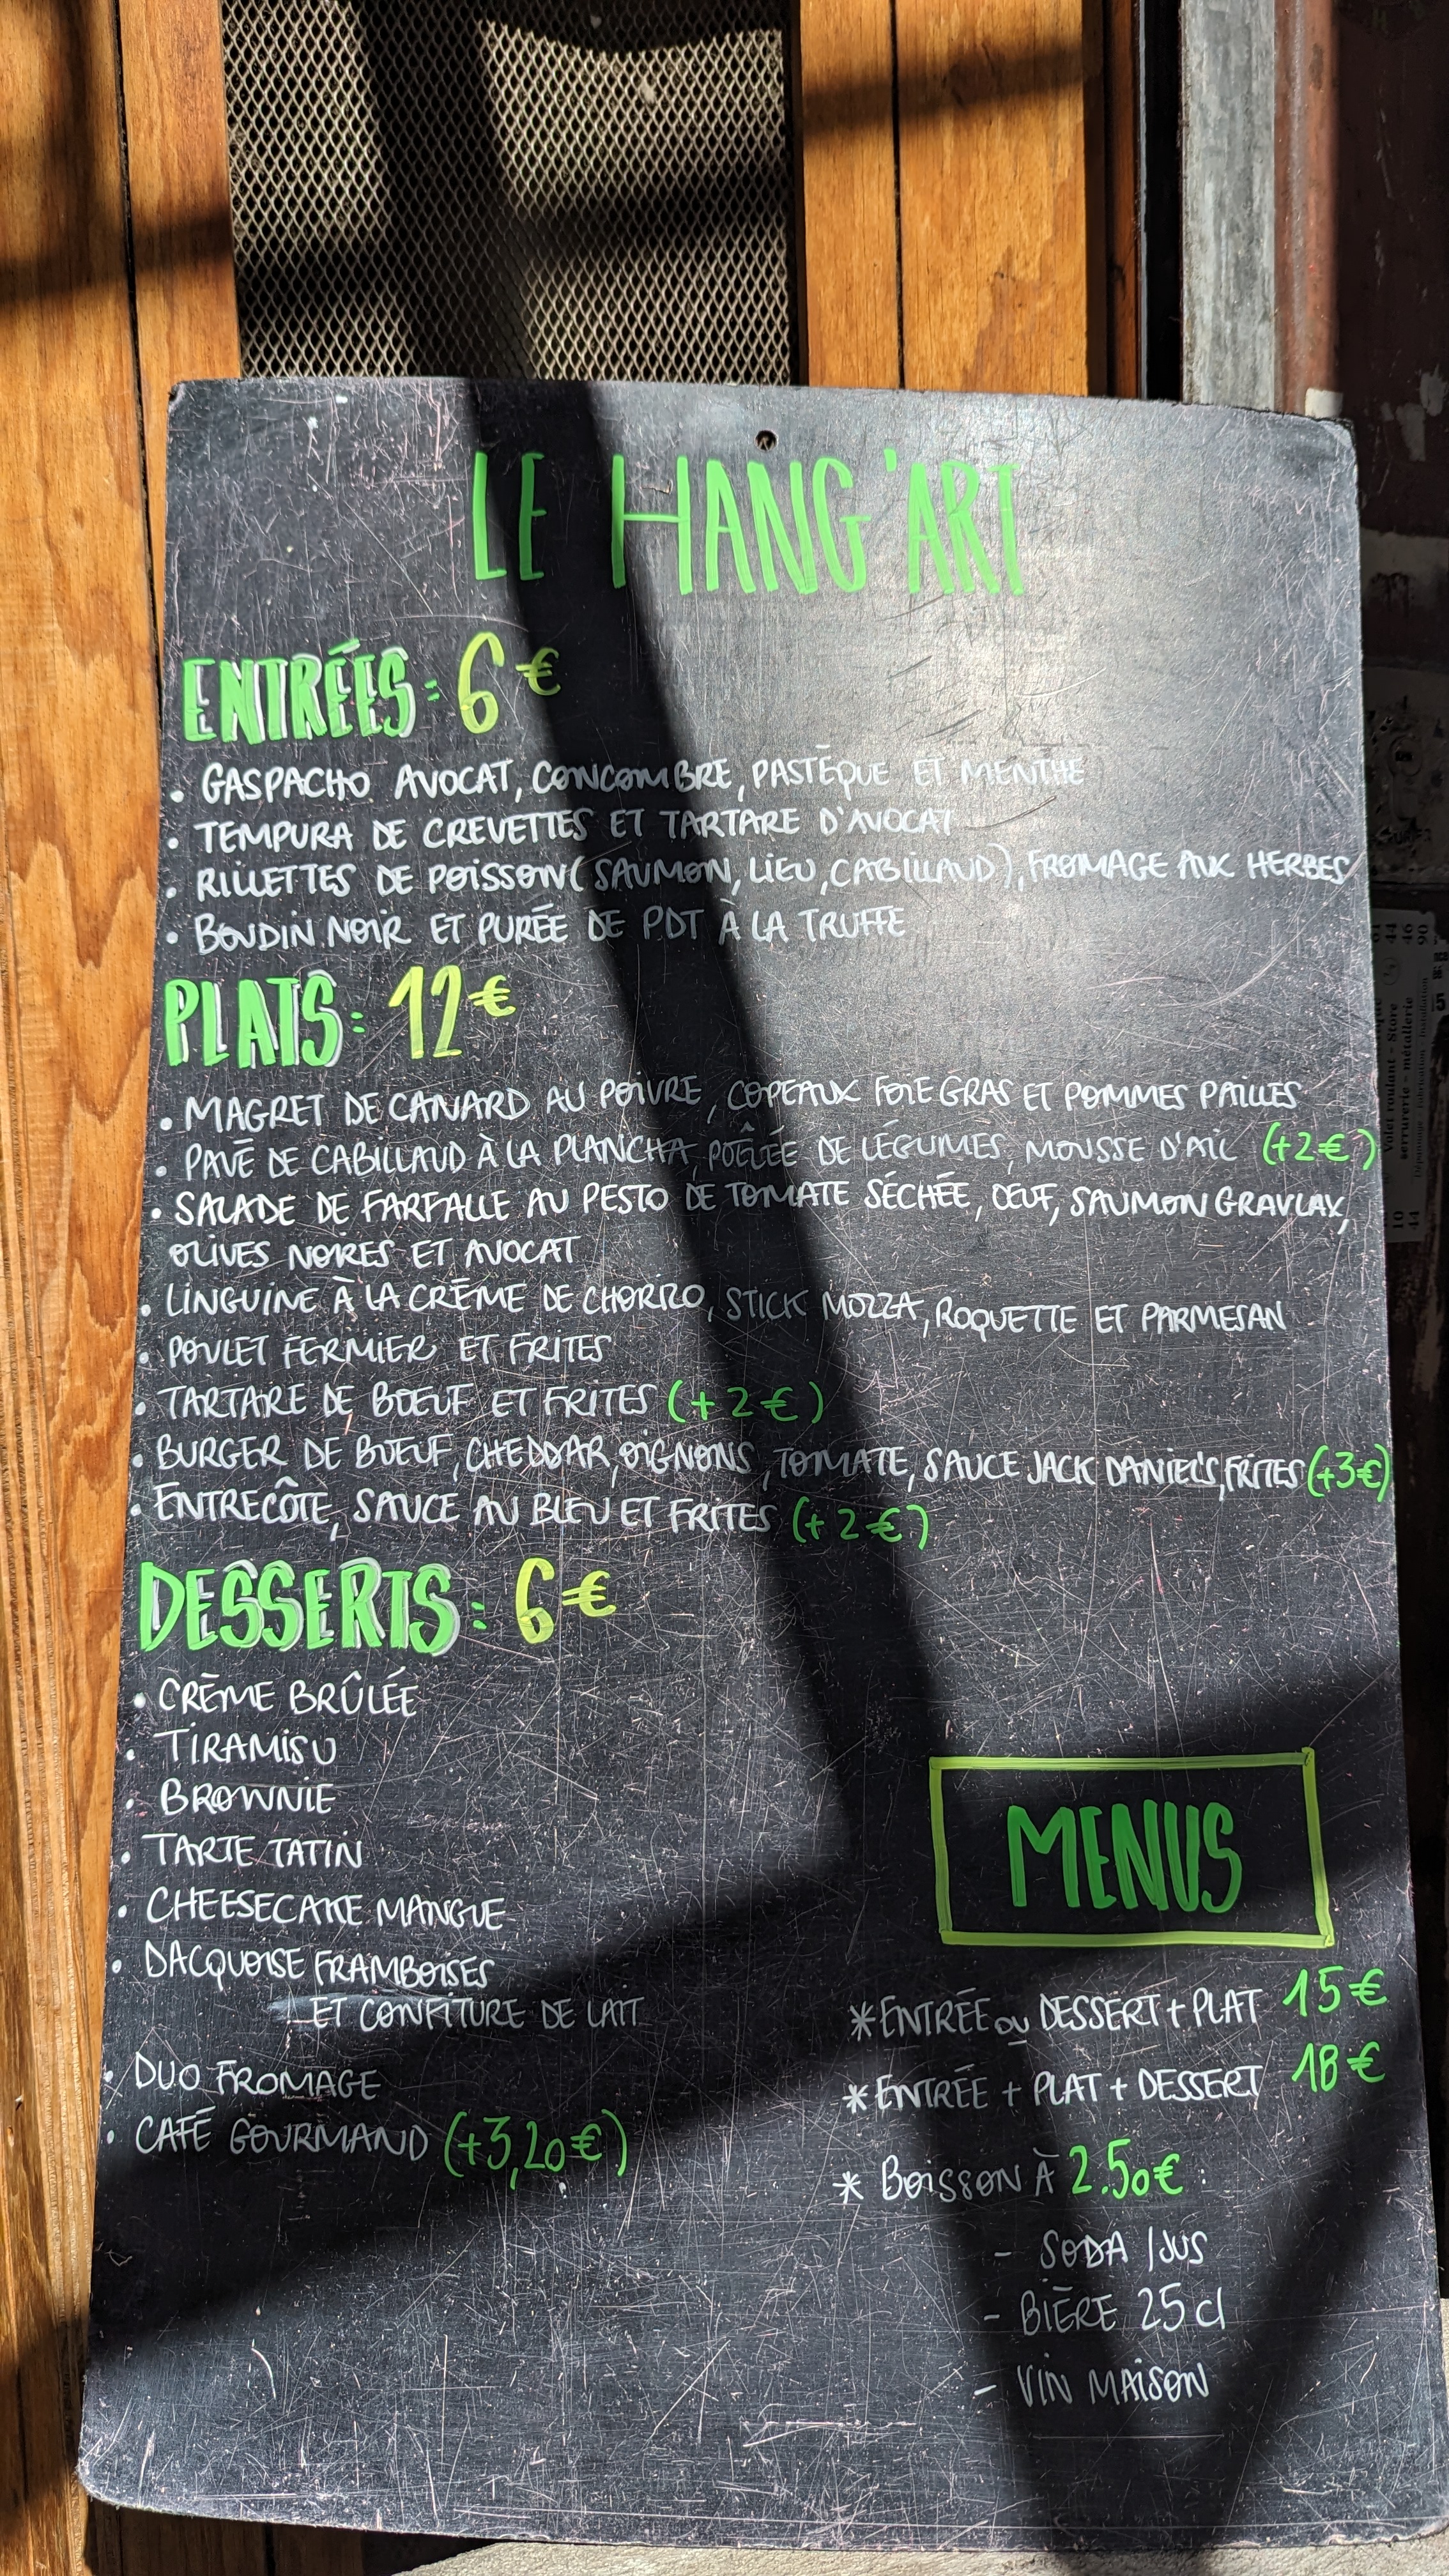 LE HANG'ART
ENTRÉES: 6€
• GASPACHO AVOCAT, CONCOMBRE, PASTÈQUE ET MENTHE
• TEMPURA DE CREVETTES ET TARTARE D'AVOCAT
• RILLETTES DE POISSON (SAUMON, LIEU, CABILLAUD), FROMAGE AUX HERBES
• BOUDIN NOIR ET PURÉE DE PDT À LA TRUFFE
PLATS: 12€
• MAGRET DE CANARD AU POIVRE, COPEAUX FOIE GRAS ET POMMES PAILLES
• PAVÉ DE CABILLAUD À LA PLANCHA, POÊLÉE DE LÉGUMES, MOUSSE D'AIL (+2€)
• SALADE DE FARFALLE AU PESTO DE TOMATE SÉCHÉE, ŒUF, SAUMON GRAVLAX,
OLIVES NOIRES ET AVOCAT
• LINGUINE À LA CRÈME DE CHORIZO, STICK MOZZA, ROQUETTE ET PARMESAN
• POULET FERMIER ET FRITES
• TARTARE DE BOEUF ET FRITES (+2€)
• BURGER DE BOEUF, CHEDDAR, OIGNONS, TOMATE, SAUCE JACK DANIEL'S, FRITES (+3€)
• ENTRECÔTE, SAUCE AU BLEU ET FRITES (+2€)
DESSERTS: 6€
• CRÈME BRÛLÉE
• TIRAMISU
• BROWNIE
• TARTE TATIN
• CHEESECAKE MANGUE
• DACQUOISE FRAMBOISES
ET CONFITURE DE LAIT
• DUO FROMAGE
• CAFÉ GOURMAND (+3,20€)
MENUS
* ENTRÉE OU DESSERT + PLAT 15€
* ENTRÉE + PLAT + DESSERT 18€
* BOISSON À 2.50€:
- SODA / JUS
- BIÈRE 25 cl
- VIN MAISON
Volet roulant - Store
serrurerie - métallerie